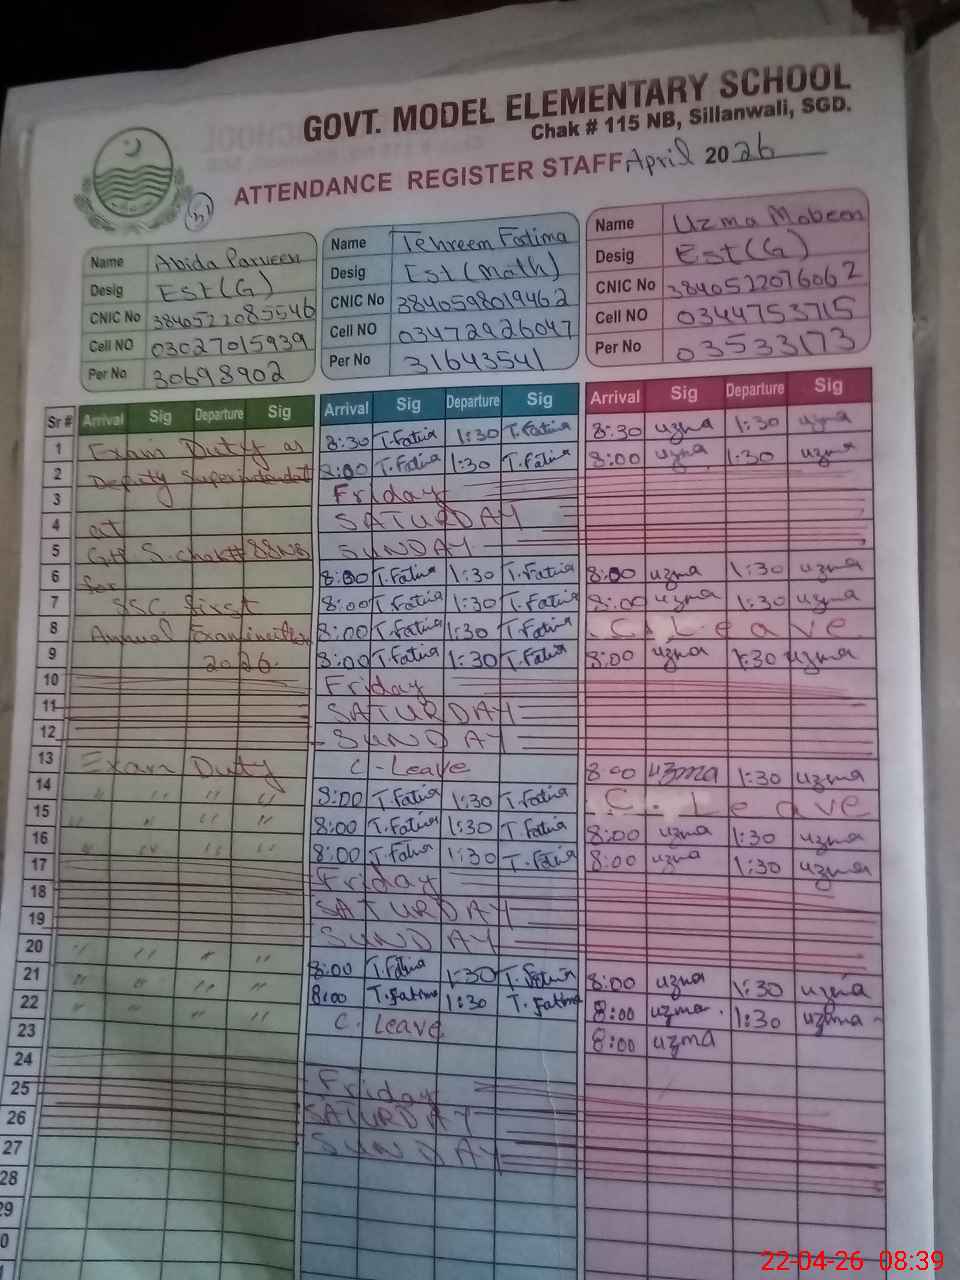 GOVT. MODEL ELEMENTARY SCHOOL
Chak # 115 NB, Sillanwali, SGD.
ATTENDANCE REGISTER STAFF April 2026
Name Abida Parveen
Desig Est(G)
CNIC No 3840522085546
Cell NO 03027015939
Per No 30698902
Name Tehreem Fatima
Desig Est (Math)
CNIC No 3840598019462
Cell NO 03472926047
Per No 31643541
Name Uzma Mabeen
Desig Est(G)
CNIC No 3840522076062
Cell NO 03447753715
Per No 03533173
Sr # Arrival Sig Departure Sig Arrival Sig Departure Sig Arrival Sig Departure Sig
1 Exam Duty as 8:30 T.Fatima 1:30 T.Fatima 8:30 uzma 1:30 uzma
2 Deputy Superintendent 8:00 T.Fatima 1:30 T.Fatima 8:00 uzma 1:30 uzma
3 Friday
4 at SATURDAY
5 S.chak# 88NB SUNDAY
6 for 8:00 T.Fatima 1:30 T.Fatima 8:00 uzma 1:30 uzma
7 SSC first 8:00 T.Fatima 1:30 T.Fatima 8:00 uzma 1:30 uzma
8 Annual Examination 8:00 T.Fatima 1:30 T.Fatima C. Leave
9 2026. 8:00 T.Fatima 1:30 T.Fatima 8:00 uzma 1:30 uzma
10 Friday
11 SATURDAY
12 SUNDAY
13 Exam Duty C-Leave 8:00 uzma 1:30 uzma
14 " " " " 8:00 T.Fatima 1:30 T.Fatima C. Leave
15 " " " " 8:00 T.Fatima 1:30 T.Fatima 8:00 uzma 1:30 uzma
16 " " " " 8:00 T.Fatima 1:30 T.Fatima 8:00 uzma 1:30 uzma
17 Friday
18 SATURDAY
19 SUNDAY
20 " " " " 8:00 T.Fatima 1:30 T.Fatima 8:00 uzma 1:30 uzma
21 " " " " 8:00 T.Fatima 1:30 T.Fatima 8:00 uzma 1:30 uzma
22 " " " " C. Leave 8:00 uzma
23
24 Friday
25 SATURDAY
26 SUNDAY
27
28
29
22-04-26 08:39